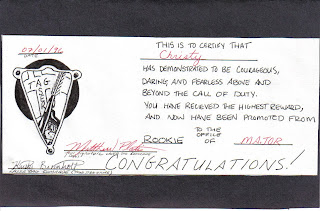 07/01/96
DATE
THIS IS TO CERTIFY THAT
Christy
HAS DEMONSTRATED TO BE COURAGEOUS,
DARING AND FEARLESS ABOVE AND
BEYOND THE CALL OF DUTY.
YOU HAVE RECIEVED THE HIGHEST REWARD,
AND NOW HAVE BEEN PROMOTED FROM
ROOKIE TO THE OFFICE OF MAJOR
CONGRATULATIONS!
TAG